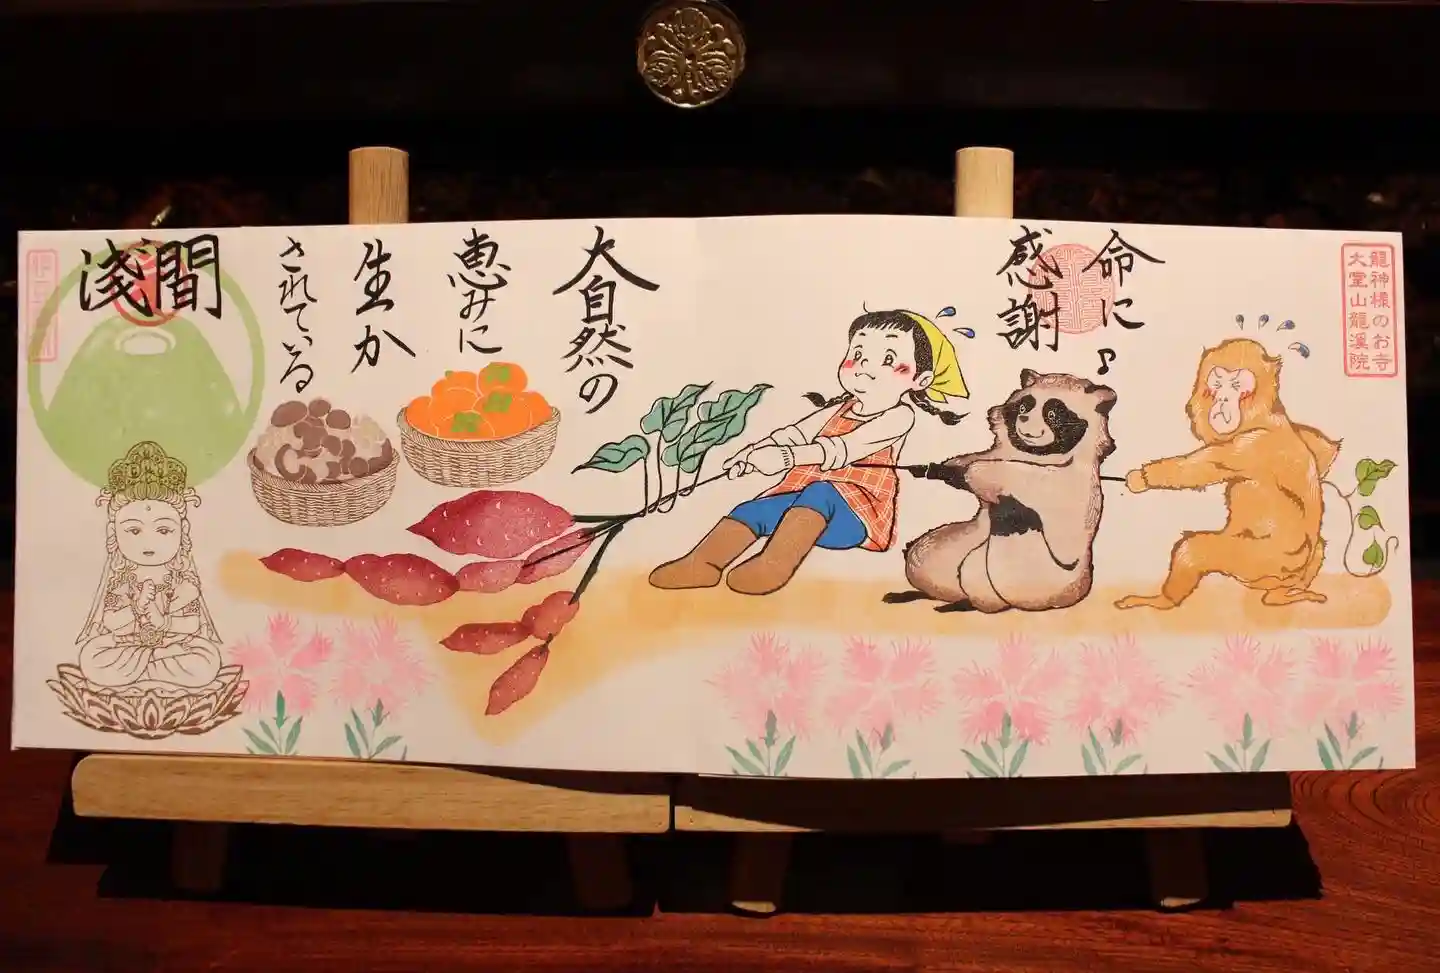 龍神様のお寺
大室山龍溪院
命に
感謝
♪
大自然の
恵みに
生か
されている
淺間